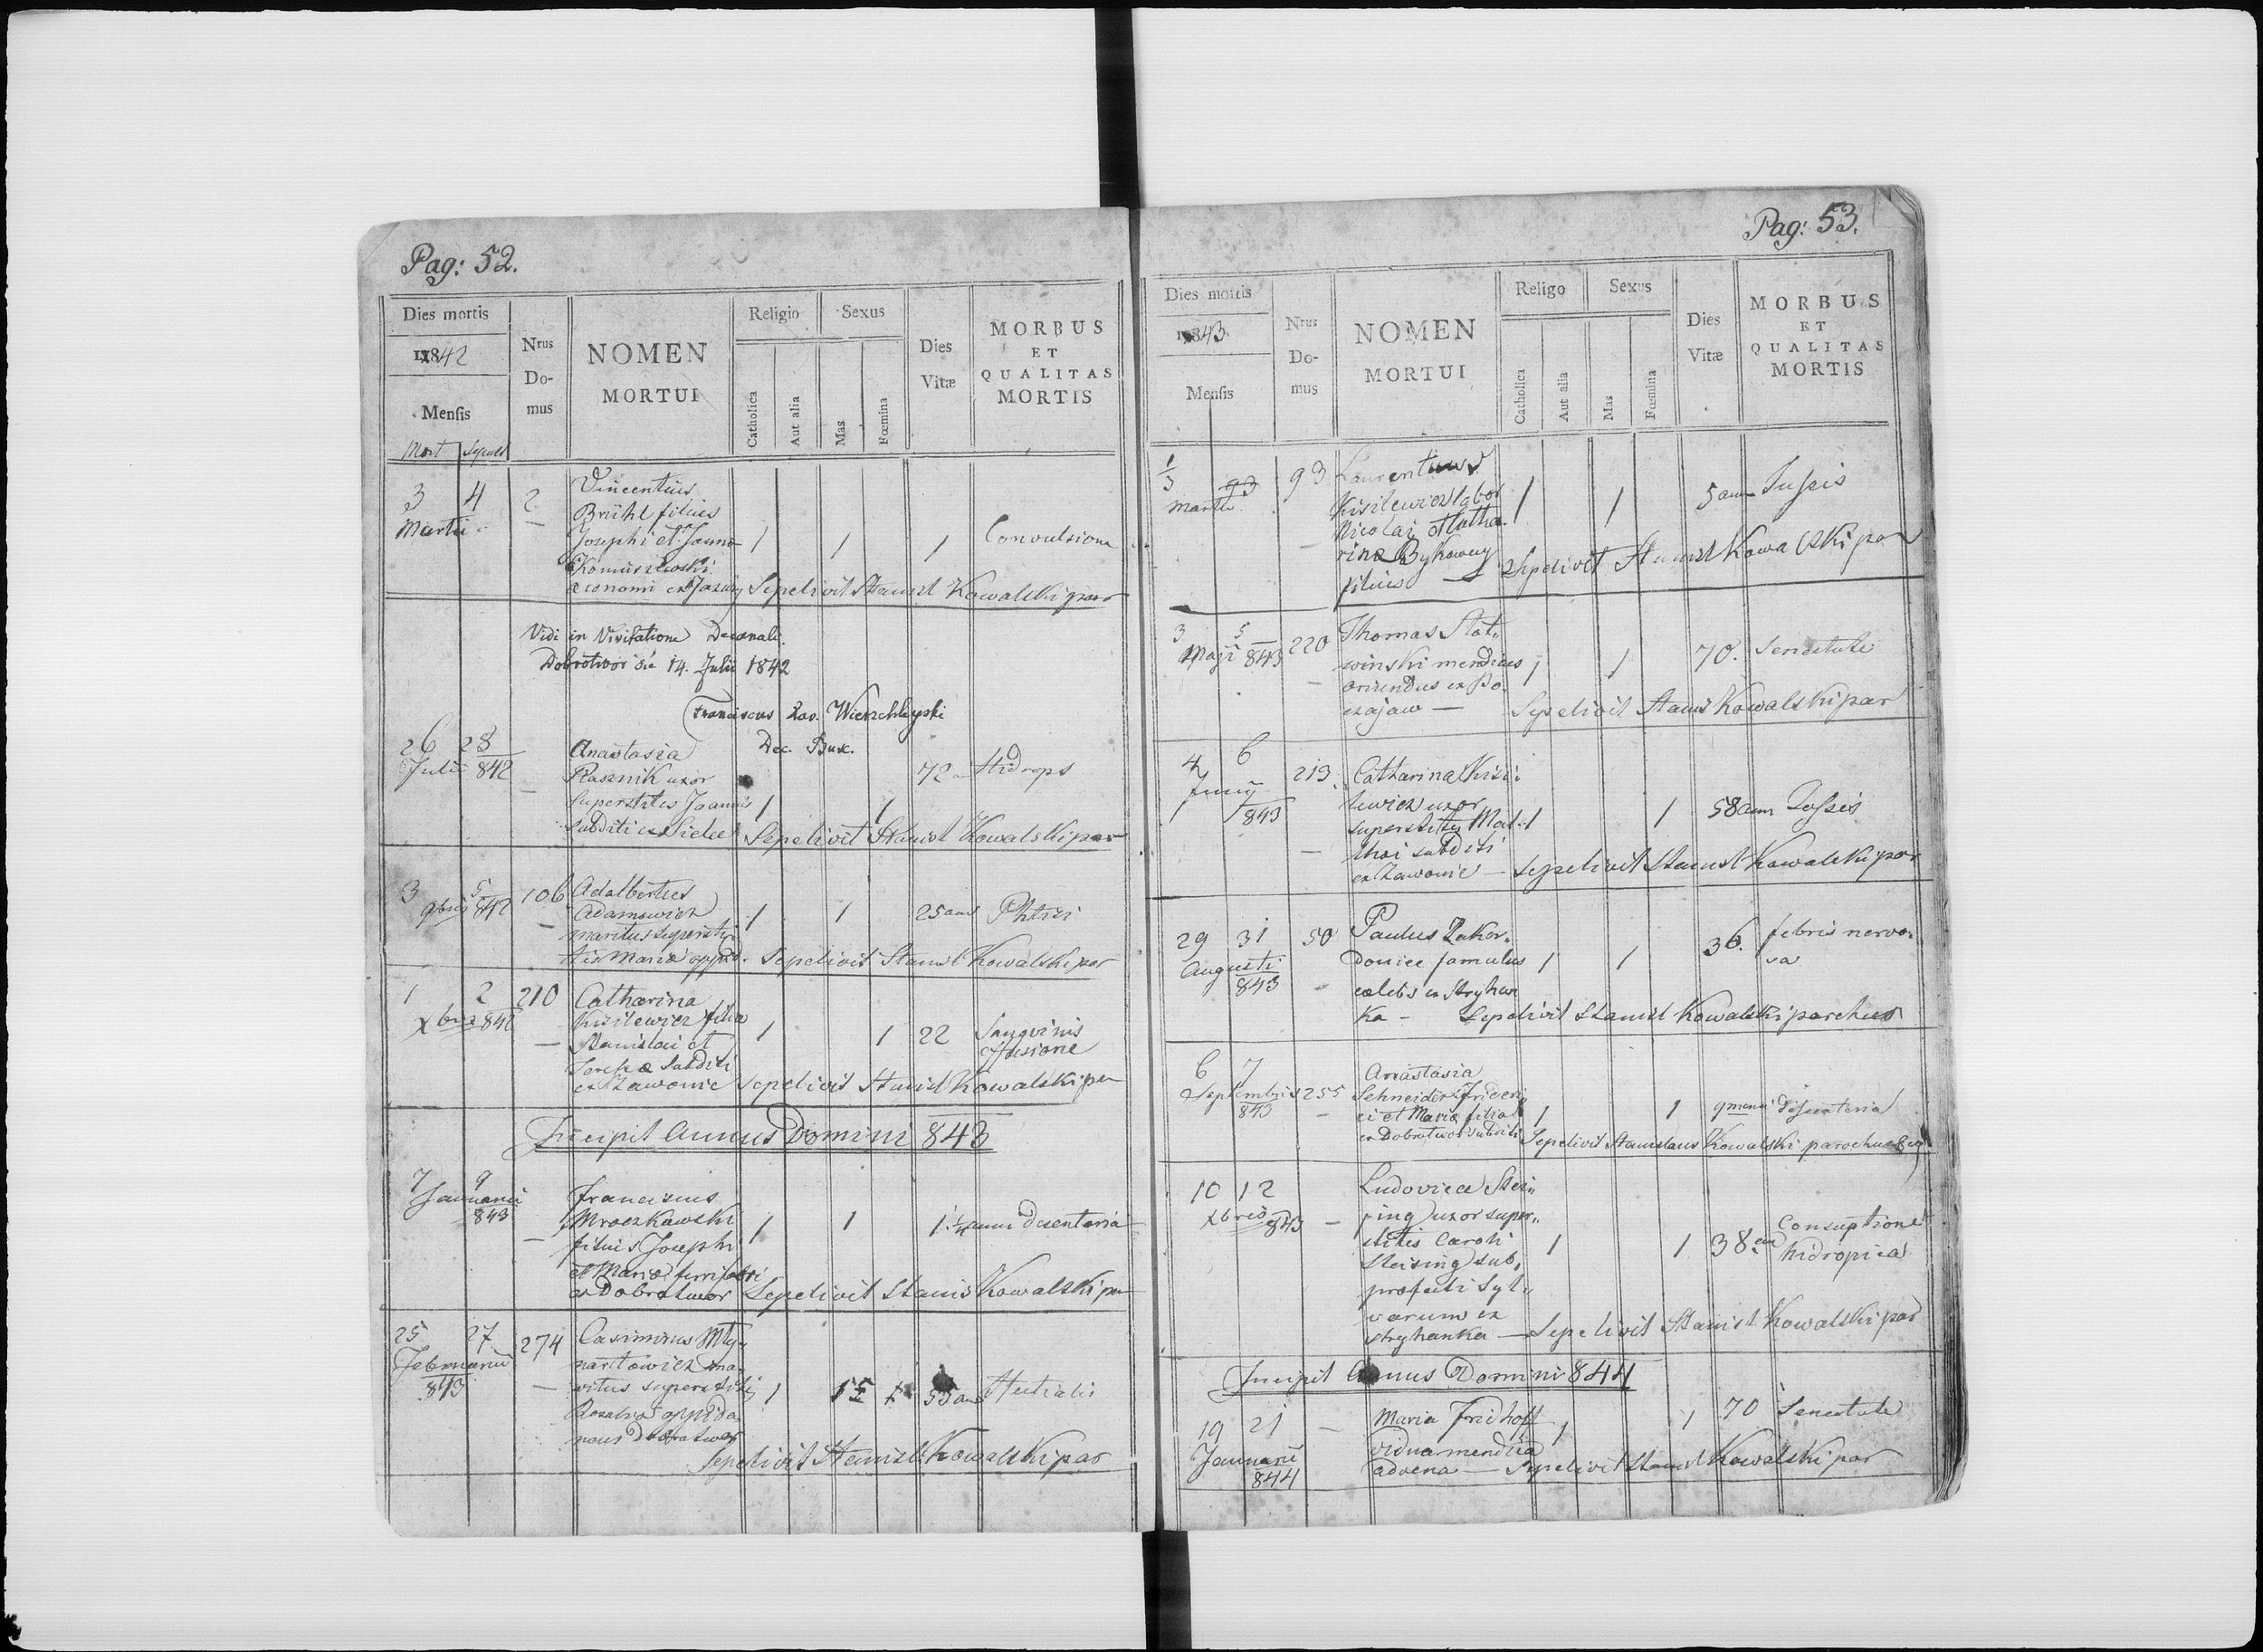 Pag: 52.
Dies mortis
1842
Mensis
Mort Sepult
Nrus
Do-
mus
NOMEN
MORTUI
Religio
Catholica
Aut alia
Sexus
Mas
Fœmina
Dies
Vitæ
MORBUS
ET
QUALITAS
MORTIS
3 4
Martii
2
Vincentius
Brühl filius
Josephi et Joanna
œconomi ex
1 1 1
Convulsione
Sepelivit Stanisl Kowalski par
Vidi in Visitatione Decanali
Dobrotwor die 14. Julii 1842
Franciscus Xav. Wierzchleyski
Dec. Busc.
26 28
Julii 842
Anastasia
Rasznik uxor
superstitis Joannis
subditi ex Sielec
1 1
72 Hidrops
Sepelivit Stanisl Kowalski par
3 5
9bris 842
106
Adalbertus
Adamowicz
maritus supersti
tis Mariæ oppid.
1 1
25 ann Phtisi
Sepelivit Stanisl Kowalski par
1 2
Xbris 842
210
Catharina
Kisilewicz filia
Stanislai et
subditi
ex Zawonie
1 1 22
Sangvinis
effusione
Sepelivit Stanisl Kowalski par
Incipit Annus Domini 843
7 9
Januarii
843
Franciscus
Mroczkowski
filius Josephi
et Mariæ ferrifabri
ex Dobrotwor
1 1
1 1/4 ann Disenteria
Sepelivit Stanis Kowalski par
25 27
Februarii
843
274
Casimirus Mły„
nartowicz ma„
ritus superstitis
oppida
neus Dobrotwor
1
55 ann
Sepelivit Stanisl Kowalski par
Pag: 53.
Dies mortis
1843
Mensis
Nrus
Do-
mus
NOMEN
MORTUI
Religo
Catholica
Aut alia
Sexus
Mas
Fœmina
Dies
Vitæ
MORBUS
ET
QUALITAS
MORTIS
1
3
Martii
93
Laurentius
Kisilewicz
Nicolai et Catha
rinæ
filius
1 1
5 ann Tussis
Sepelivit Stanisl Kowalski par
3 5
Maji 843
220
Thomas Stot„
winski mendicus
oriundus ex
1 1
70. Senectute
Sepelivit Stanis Kowalski par
4 6
Junij
843
219
Catharina Kisi„
lewicz uxor
superstitis Mat„
thei subditi
ex Zawonie
1 1
58 ann Tussis
Sepelivit Stanisl Kowalski par
29 31
Augusti
843
50
Paulus Zakor„
doniec famulus
cælebs ex Stryhan
ka
1 1
36. febris nervo„
sa
Sepelivit Stanisl Kowalski parochus
6 7
Septembris
843
255
Anastasia
Schneider Frideri
ci et Mariæ filia
ex Dobrotwor subditi
1 1
9 mensi Disenteria
Sepelivit Stanislaus Kowalski parochus
10 12
Xbris
843
Ludovica Stei„
sing uxor super„
stitis Caroli
Steising sub„
præfecti Syl„
varum ex
Stryhanka
1 1
38
Consuptione
hidropica
Sepelivit Stanisl Kowalski par
Incipit Annus Domini 844
19 21
Januarii
844
Maria Fridhoff
vidua mendica
advena
1 1
70 Senectute
Sepelivit Stanisl Kowalski par